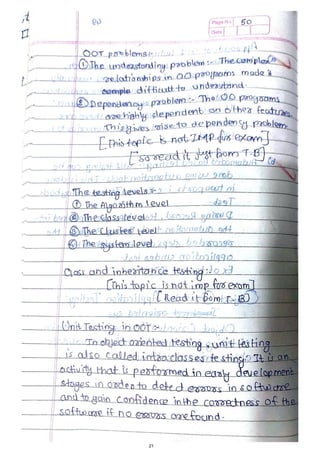 Page No. 50
Date
OOT problems:-
① The understanding problem :- The complex
relationships in OO programs made it
difficult to understand.
② Dependency problem:- The OO programs
are highly dependent on other features
This gives rise to dependency problem
[This topic is not IMP for exam]
[so read it just from T-B]
The testing levels :-
① The Algorithm level
② The Class level
③ The Cluster level
④ The system level
Class and inheritance testing :-
[This topic is not imp for exam]
[Read it from T-B]
Unit Testing in OOT :-
In object oriented testing, unit testing
is also called intra classes testing. It is an
activity that is performed in early development
stages in order to detect errors in software
and to gain confidence in the correctness of the
software if no errors are found.
21